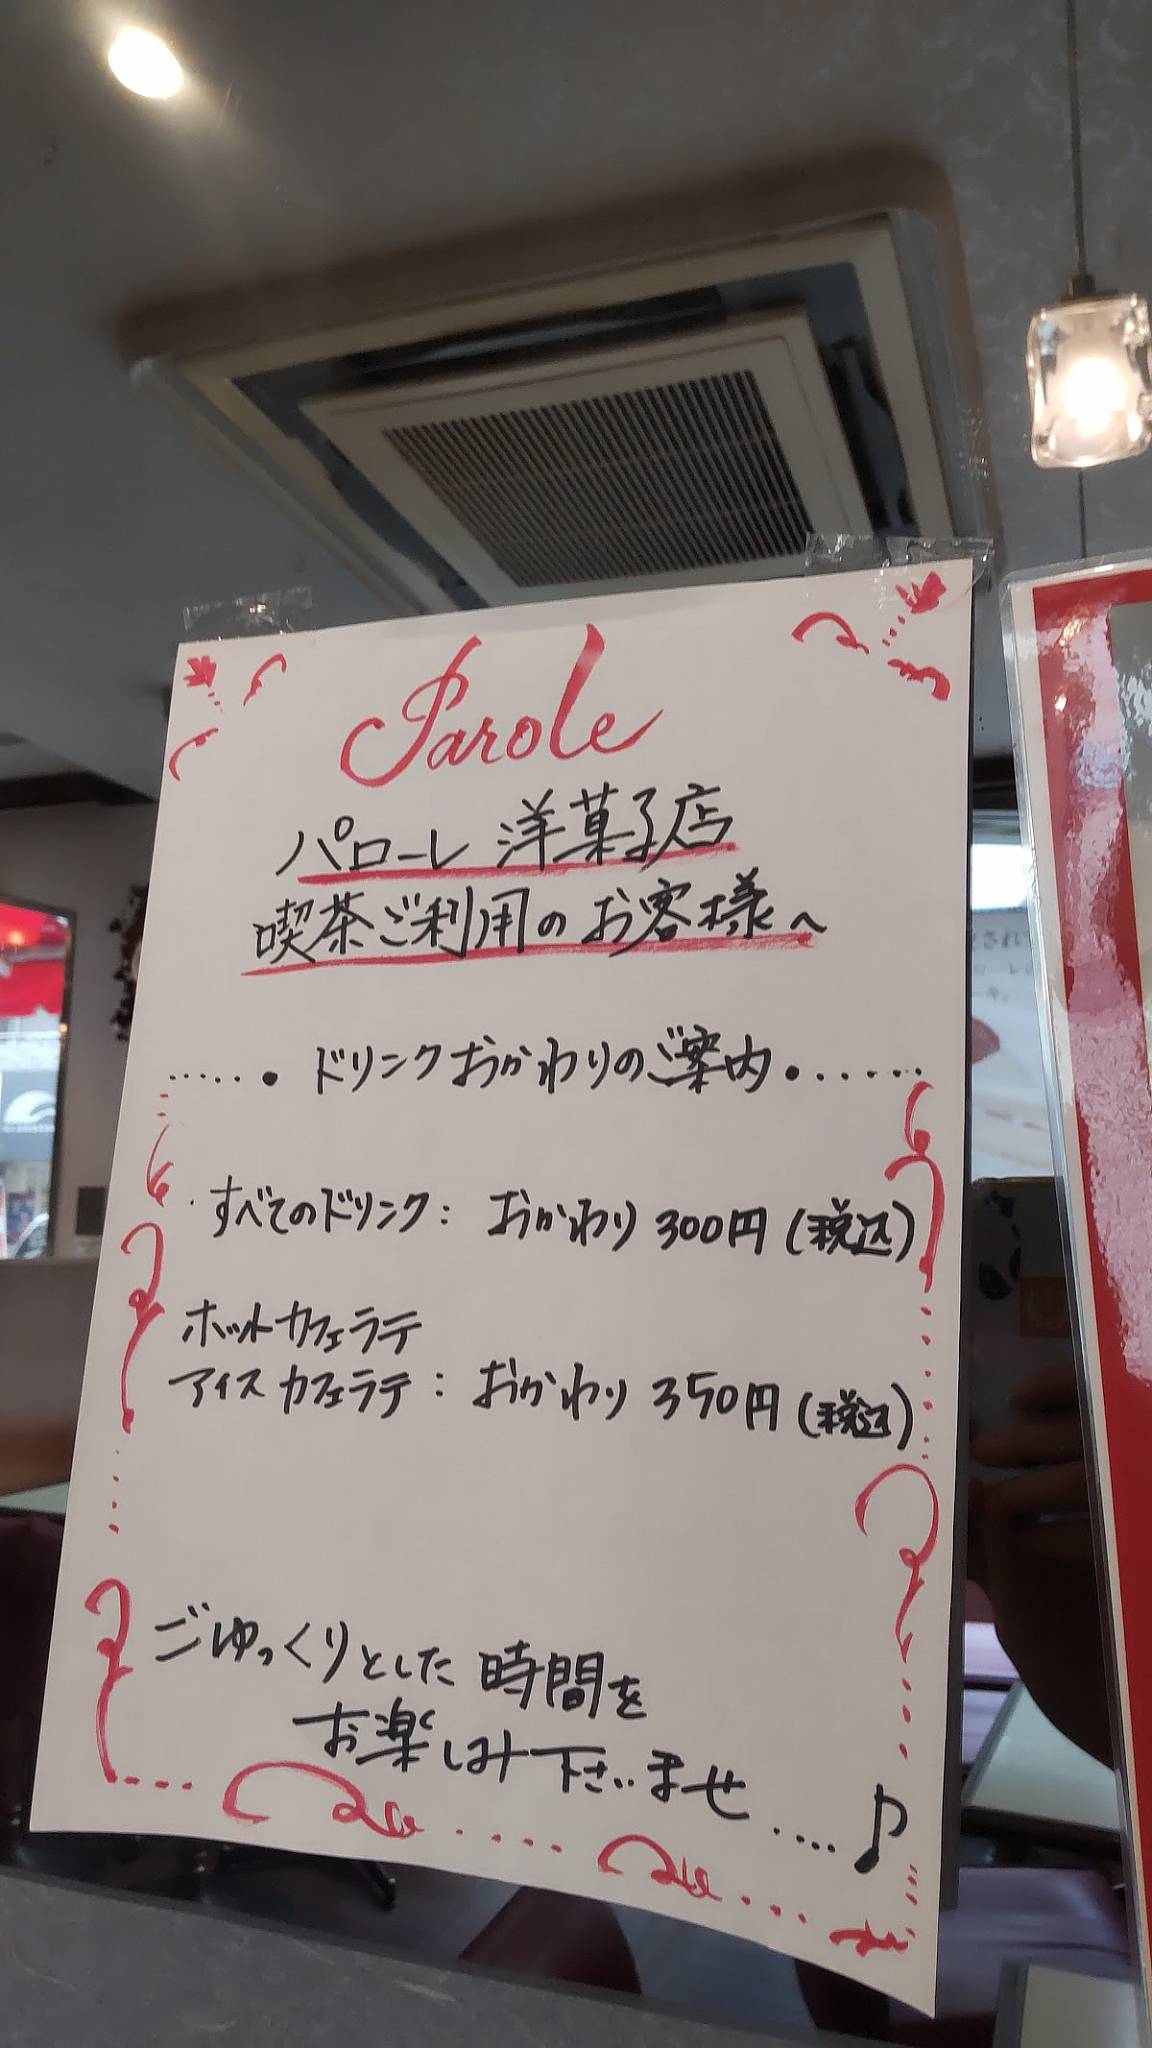 Parole
パローレ 洋菓子店
喫茶ご利用のお客様へ
・・・・・・ドリンクおかわりのご案内・・・・・・
・すべてのドリンク：おかわり 300円(税込)
ホットカフェラテ
アイスカフェラテ：おかわり 350円(税込)
ごゆっくりとした時間を
お楽しみ下さいませ....♪